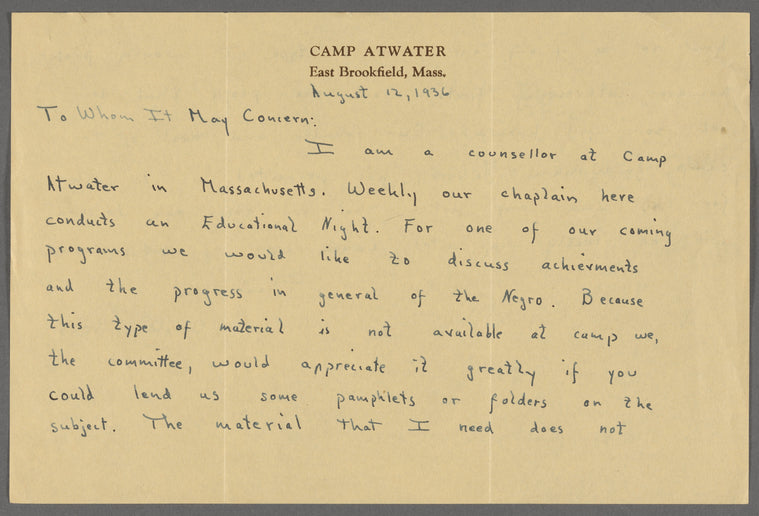 CAMP ATWATER
East Brookfield, Mass.
August 12, 1936
To Whom It May Concern:
I am a counsellor at Camp
Atwater in Massachusetts. Weekly our chaplain here
conducts an Educational Night. For one of our coming
programs we would like to discuss achievments
and the progress in general of the Negro. Because
this type of material is not available at camp we,
the committee, would appreciate it greatly if you
could lend us some pamphlets or folders on the
subject. The material that I need does not